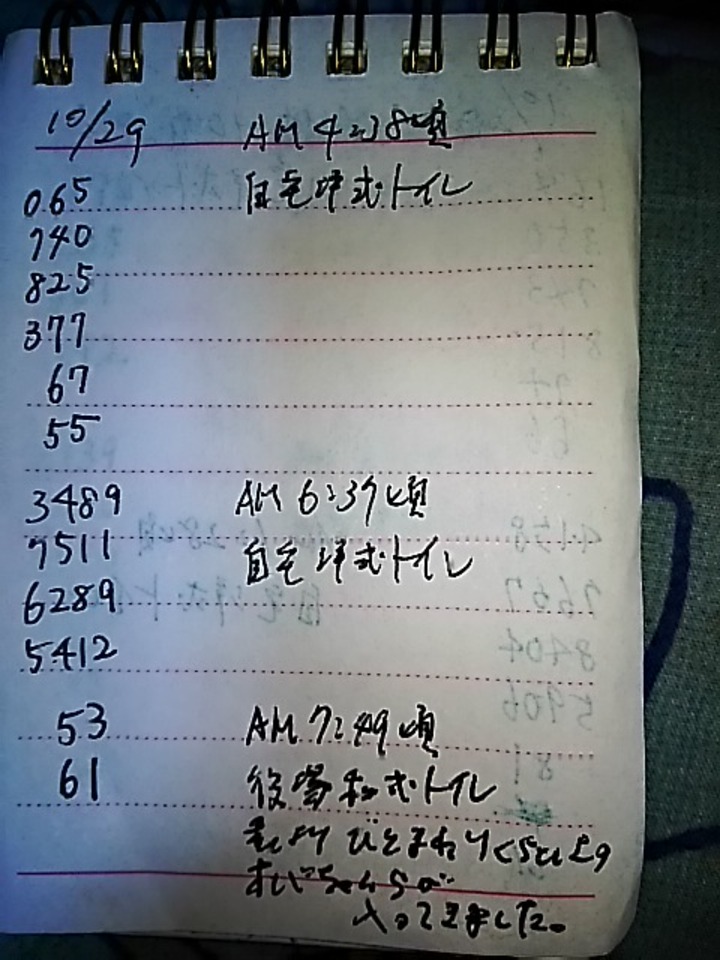 10/29 AM 4:38頃
065 自宅洋式トイレ
740
825
377
67
55
3489 AM 6:37頃
7511 自宅洋式トイレ
6289
5412
53 AM 7:49頃
61 役場和式トイレ
私よりひとまわりくらい上の
おじちゃんらが
入ってきました。